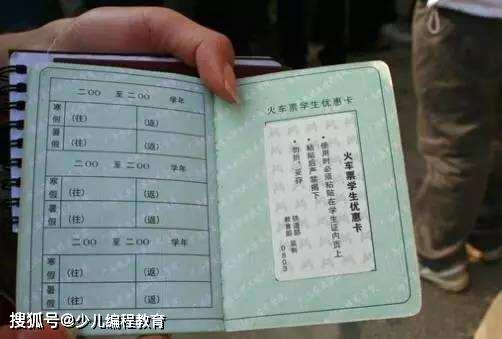 二〇〇 至 二〇〇 学年
寒假 (往) (返)
暑假 (往) (返)
二〇〇 至 二〇〇 学年
寒假 (往) (返)
暑假 (往) (返)
二〇〇 至 二〇〇 学年
寒假 (往) (返)
暑假 (往) (返)
火车票学生优惠卡
火车票学生优惠卡
·使用时必须粘贴在学生证内页上
·粘贴后严禁揭下
·勿折、妥存
铁道部
教育部 监制
0803
搜狐号@少儿编程教育